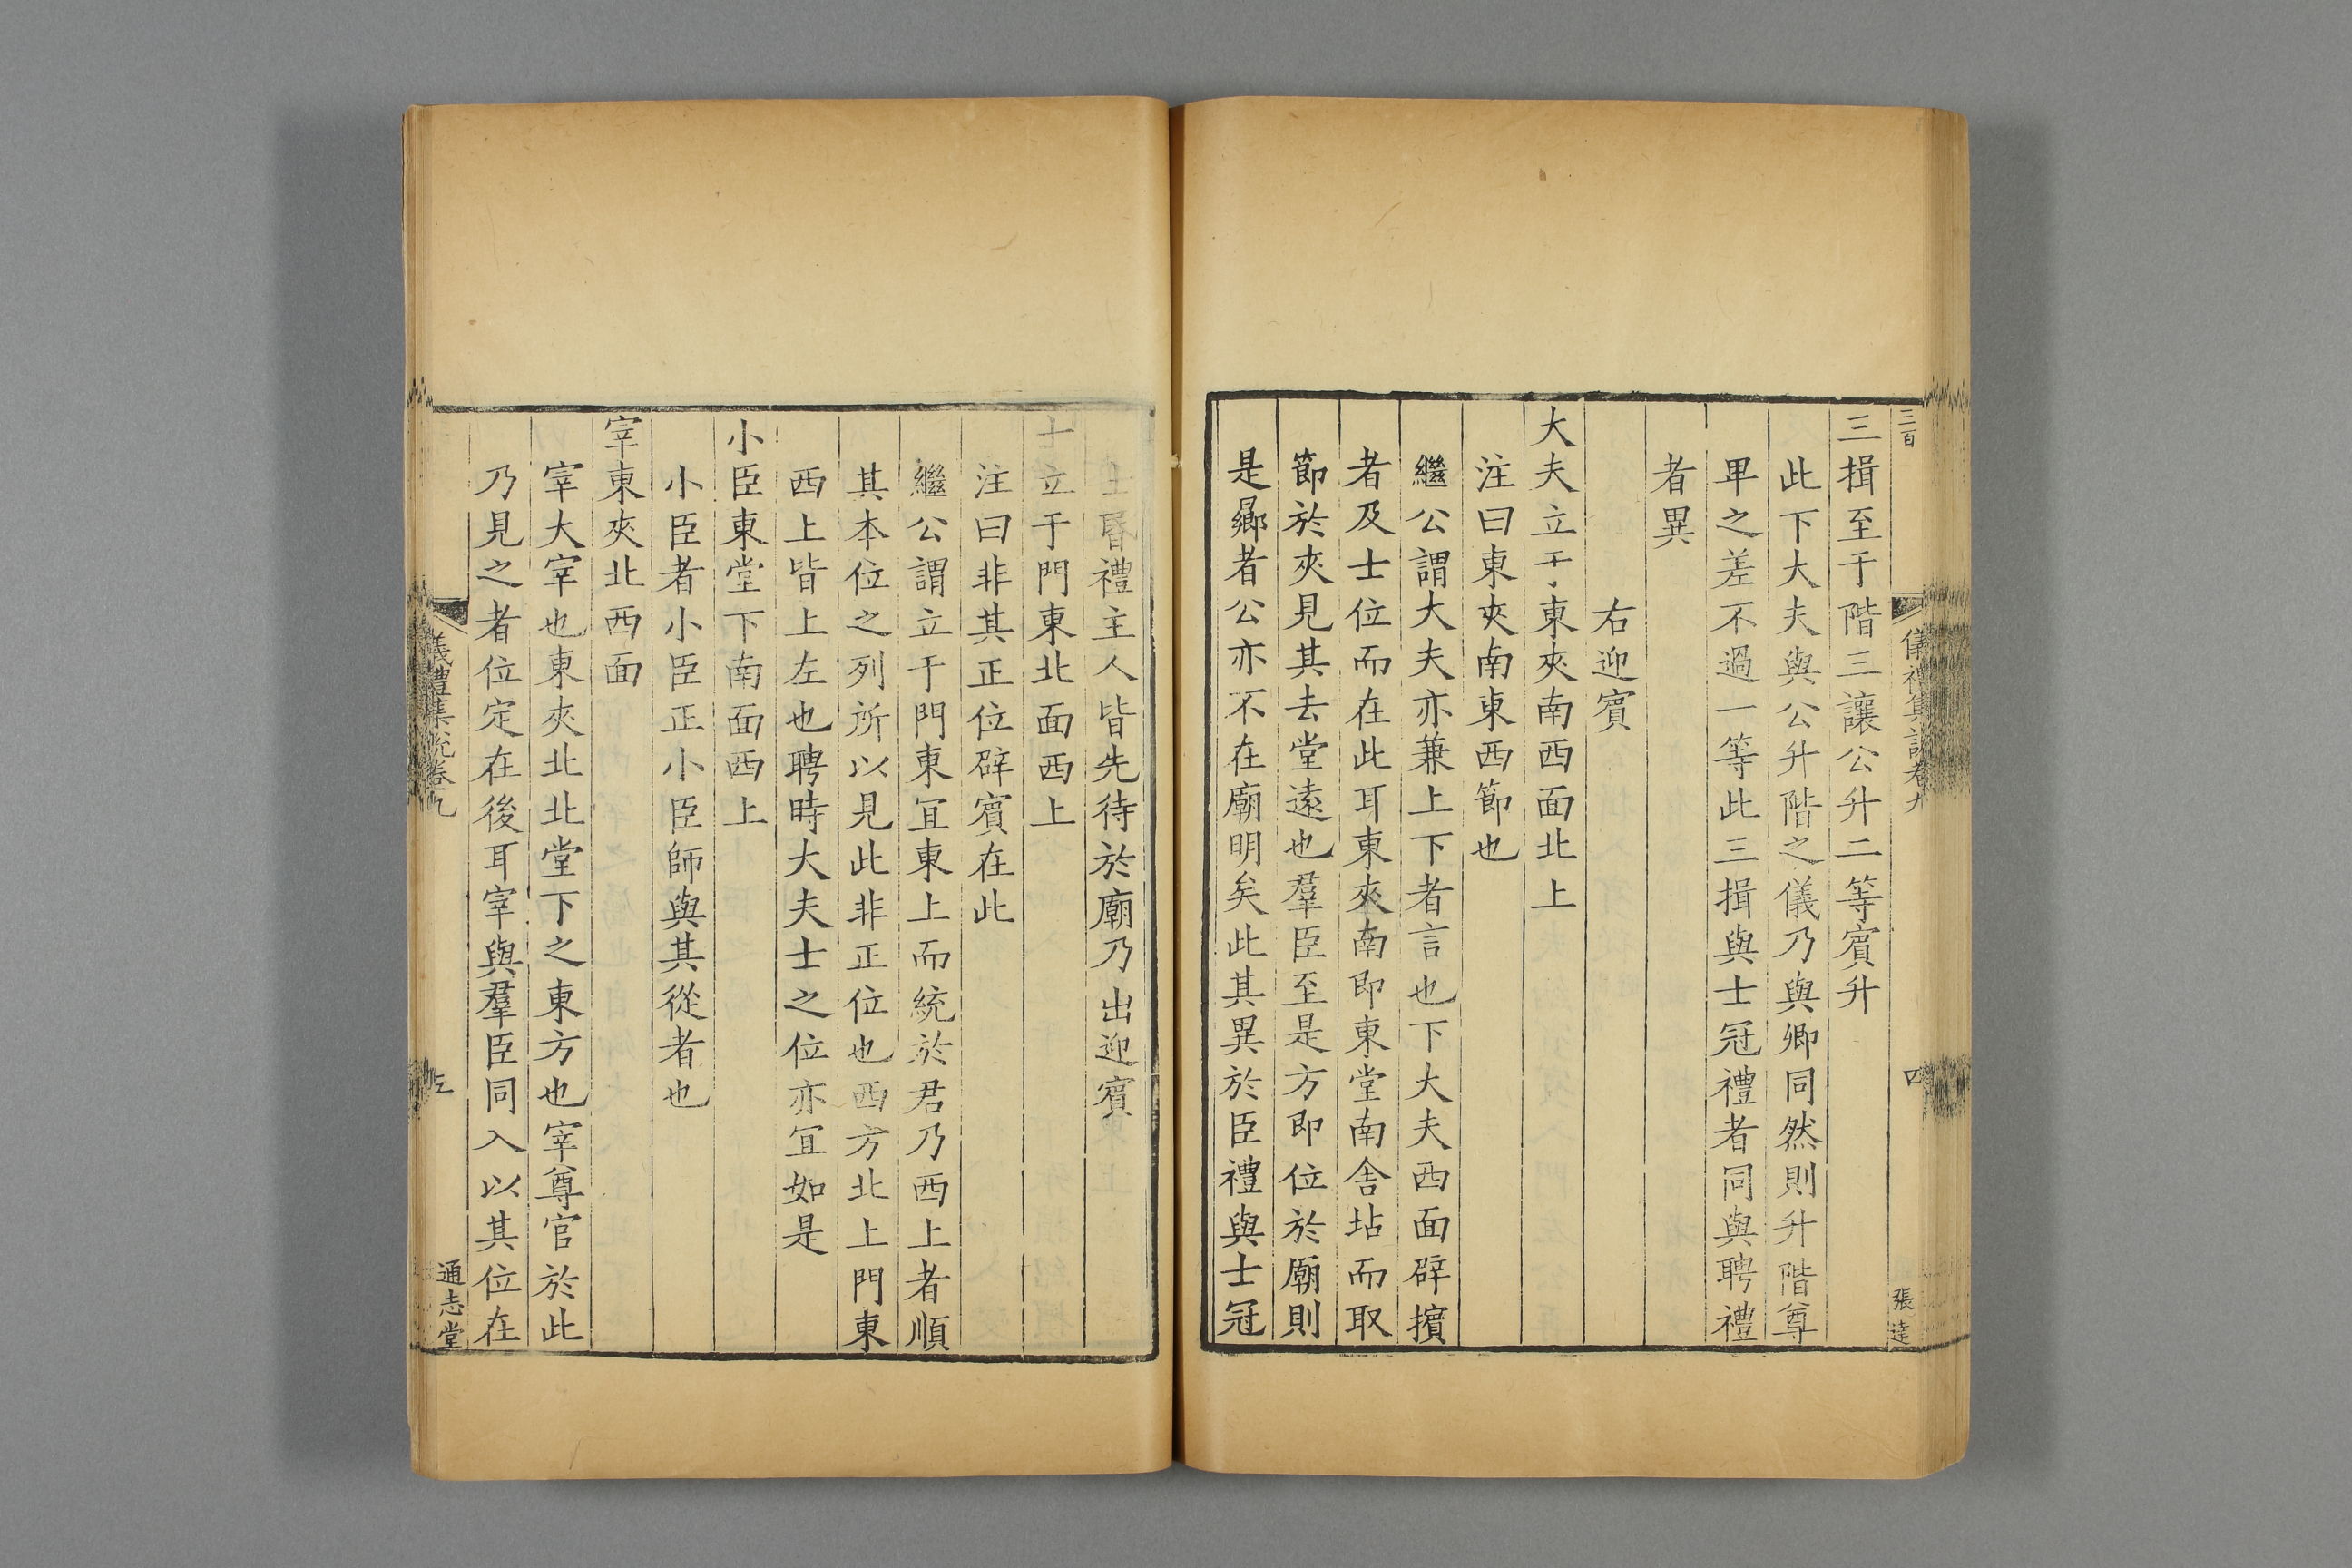 三百
四
張達
三揖至于階三讓公升二等賓升
此下大夫與公升階之儀乃與卿同然則升階尊
卑之差不過一等此三揖與士冠禮者同與聘禮
者異
右迎賓
大夫立于東夾南西面北上
注曰東夾南東西節也
繼公謂大夫亦兼上下者言也下大夫西面辟擯
者及士位而在此耳東夾南即東堂南舍坫而取
節於夾見其去堂遠也羣臣至是方即位於廟則
是曏者公亦不在廟明矣此其異於臣禮與士冠
昬禮主人皆先待於廟乃出迎賓
士立于門東北面西上
注曰非其正位辟賓在此
繼公謂立于門東宜東上而統於君乃西上者順
其本位之列所以見此非正位也西方北上門東
西上皆上左也聘時大夫士之位亦宜如是
小臣東堂下南面西上
小臣者小臣正小臣師與其從者也
宰東夾北西面
宰大宰也東夾北北堂下之東方也宰尊官於此
乃見之者位定在後耳宰與羣臣同入以其位在
儀禮集說卷九
通志堂